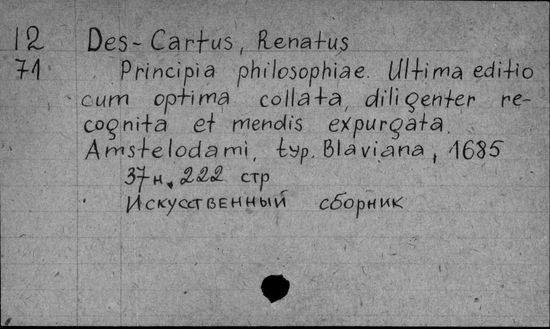 12 Des-Cartus, Renatus
71 Principia philosophiae. Ultima editio
cum optima collata, diligenter re-
cognita et mendis expurgata.
Amstelodami, typ. Blaviana, 1685
37н, 222 стр
Искусственный сборник